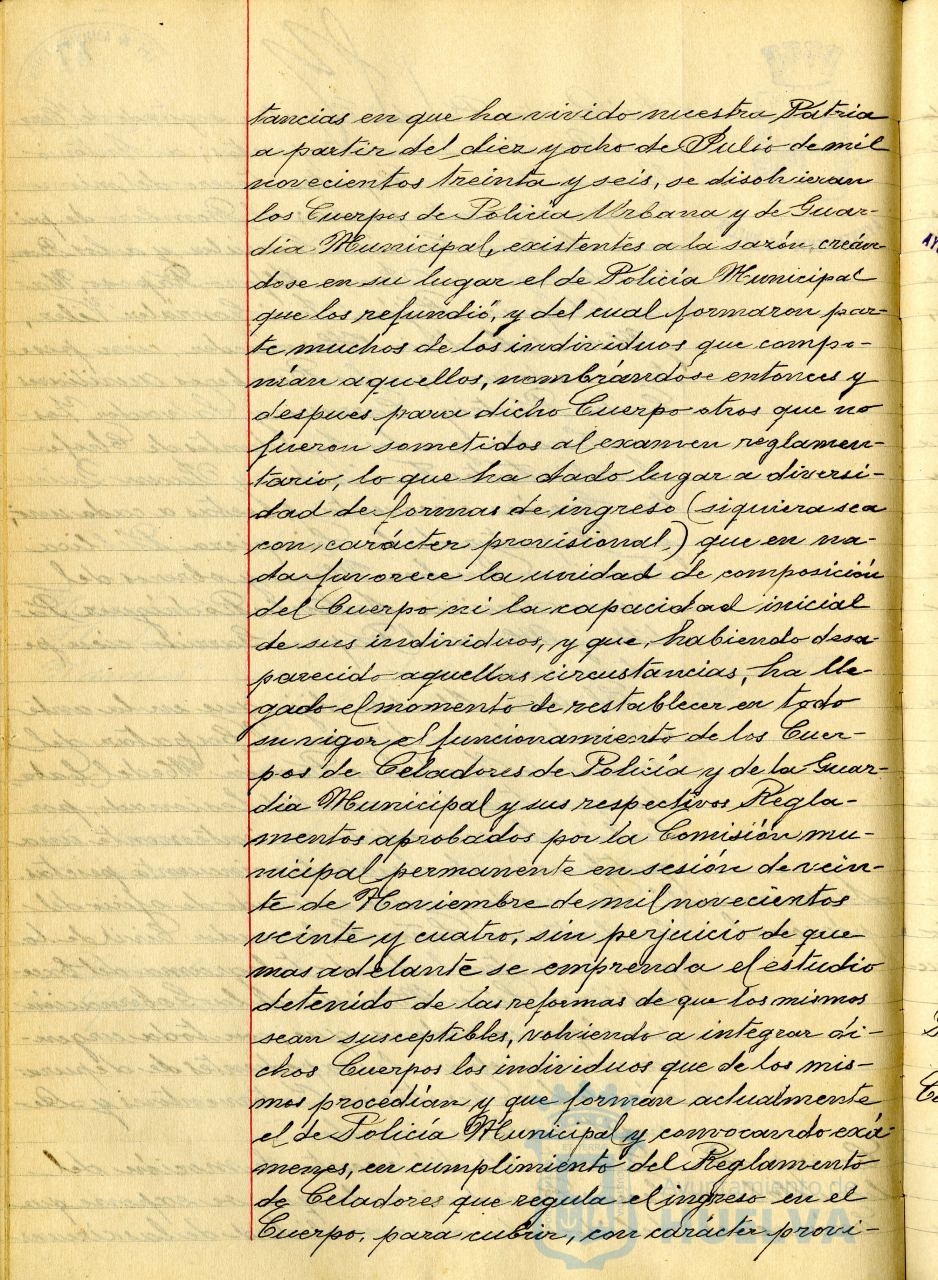 tancias en que ha vivido nuestra Patria
a partir del diez y ocho de Julio de mil
novecientos treinta y seis, se disolvieran
los Cuerpos de Policía Urbana y de Guar-
dia Municipal, existentes a la sazón, creán-
dose en su lugar el de Policía Municipal
que los refundió, y del cual formaron par-
te muchos de los individuos que compo-
nían aquellos, nombrándose entonces y
después para dicho Cuerpo otros que no
fueron sometidos al examen reglamen-
tario, lo que ha dado lugar a diversi-
dad de formas de ingreso (siquiera sea
con carácter provisional,) que en na-
da favorece la unidad de composición
del Cuerpo ni la capacidad inicial
de sus individuos, y que, habiendo desa-
parecido aquellas circustancias, ha lle-
gado el momento de restablecer en todo
su vigor el funcionamiento de los Cuer-
pos de Celadores de Policía y de la Guar-
dia Municipal y sus respectivos Regla-
mentos aprobados por la Comisión mu-
nicipal permanente en sesión de vein-
te de Noviembre de mil novecientos
veinte y cuatro, sin perjuicio de que
mas adelante se emprenda el estudio
detenido de las reformas de que los mismos
sean susceptibles, volviendo a integrar di-
chos Cuerpos los individuos que de los mis-
mos procedían y que forman actualmente
el de Policía Municipal y convocando exá-
menes, en cumplimiento del Reglamento
de Celadores que regula el ingreso en el
Cuerpo, para cubrir, con carácter provi-
Ayuntamiento de
HUELVA